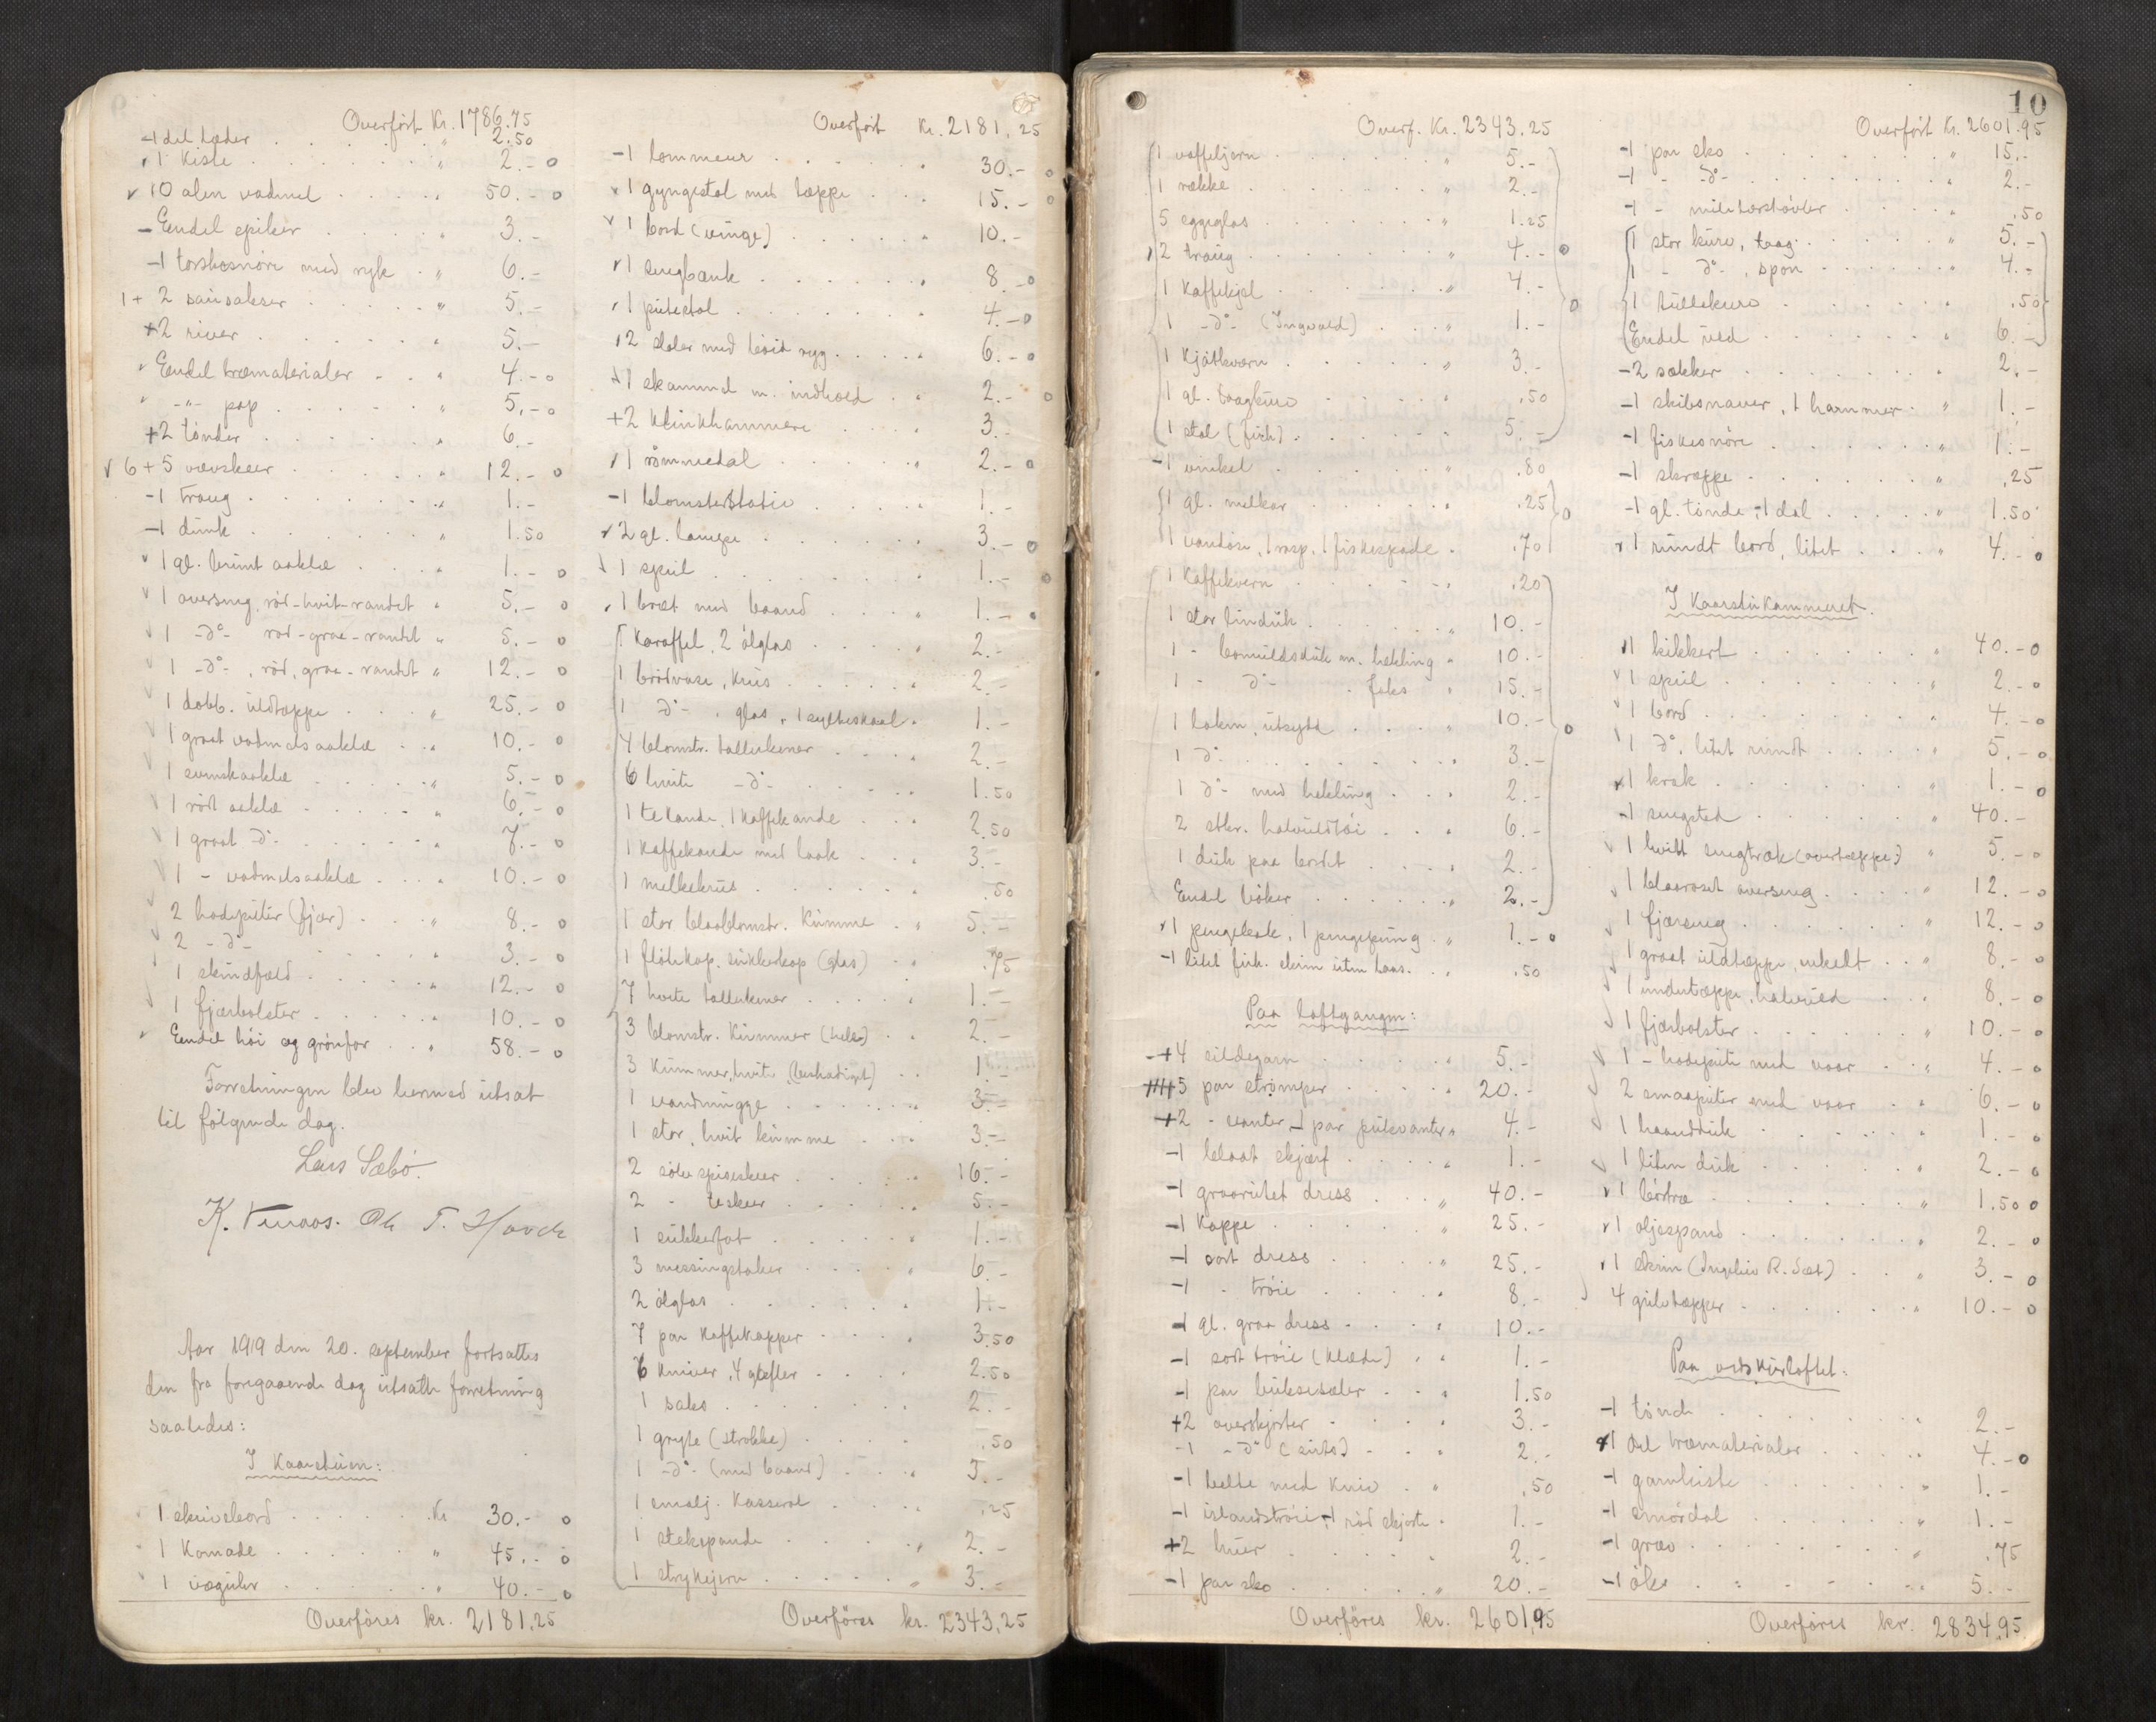 Overført Kr. 1786.75
-1 del læder . . . . . " 2.50
v 1 kiste . . . . . . " 2.- o
v 10 alen vadmel . . . . " 50.- o
- Endel spiker . . . . " 3.-
-1 torskesnøre med ryk . " 6.-
1+ 2 sausakser . . . . " 5.-
+2 river . . . . . . " 5.-
v Endel træmaterialer . . " 4.- o
v -"- pap . . . . . " 5.- o
+2 tønder . . . . . . " 6.-
v 6+5 vævskeer . . . . . " 12.- o
-1 traug . . . . . . " 1.-
-1 dunk . . . . . . " 1.50
v 1 gl. brunt aaklæ . . . " 1.- o
v 1 overseng, rød-hvit-randet " 5.- o
v 1 -do- rød-graa-randet " 5.- o
v 1 -do-, rød, graa-randet " 12.- o
v 1 dobb. uldtæppe . . . " 25.- o
v 1 graat vadmelsaaklæ . . " 10.- o
v 1 svenskaaklæ . . . . " 5.- o
v 1 rødt aaklæ . . . . " 6.- o
v 1 graat do . . . . . " 7.- o
v 1 - vadmelsaaklæ . . . " 10.- o
v 2 hodeputer (fjær) . . . " 8.- o
v 2 -do- . . . . . " 3.- o
v 1 skindfæld . . . . . " 12.- o
v 1 fjærbolster . . . . " 10.- o
v Endel høi og grønfor . . " 58.- o
Forretningen blev hermed utsat
til følgende dag.
Lars Sæbø.
Aar 1919 den 20. september fortsattes
den fra foregaaende dag utsatte forretning
saaledes:
I Kaarstuen:
1 skrivebord . . . . . Kr. 30.- o
1 Komode . . . . . . " 45.- o
1 væguhr . . . . . . " 40.- o
Overføres kr. 2181,25
Overført Kr. 2181,25
-1 lommeur . . . . . " 30.- o
v 1 gyngestol med tæppe . . " 15.- o
v 1 bord (vinge) . . . . " 10.-
v 1 sengbænk . . . . . " 8.- o
v 1 putestol . . . . . " 4.- o
v 2 stoler med høit ryg . . " 6.- o
v 1 skammel m. indhold . . " 2.- o
+2 Klinkhammere . . . " 3.-
v 1 rømmedal . . . . . " 2.- o
-1 blomsterstativ . . . " 1.-
v 2 gl. lampe . . . . . " 3.- o
v 1 speil . . . . . . " 1.- o
v 1 bræt med baand . . . " 1.- o
1 Karaffel, 2 ølglas . . . " 2.-
1 brødvase, krus . . . . " 2.-
1 do- , glas, 1 sylteskaal . " 1.-
4 blomstr. tallerkener . . " 2.-
6 hvite -do- . . . . " 1.50
1 tekande, 1 kaffekande . . " 2.50
1 kaffekande med laak . . " 3.-
1 melkekrus . . . . . " .50
1 stor blaablomstr. Kumme . " 5.-
1 fløtekop, sukkerkop (glas) . " .75
7 hvite tallerkener . . . " 1.-
3 blomstr. Kummer (hele) . " 2.-
3 Kummer, hvite (beskadiget) . " 1.-
1 vandmugge . . . . . " 3.-
1 stor, hvit kumme . . . " 3.-
2 sølvspiseskeer . . . . " 16.-
2 - teskeer . . . . " 5.-
1 sukkerfat . . . . . " 1.-
3 messingstaker . . . . " 6.-
2 ølglas . . . . . . " 1.-
7 par Kaffekopper . . . " 3.50
6 kniver, 4 gafler . . . " 2.50
1 saks . . . . . . . " 2.-
1 gryte (strokke) . . . . " .50
1 -do- (med baand) . . . " 3.-
1 emalj. Kasserol . . . . " .25
1 stekepande . . . . . " 2.-
1 strykejern . . . . . " 3.-
Overføres kr. 2343,25
10
Overf. Kr. 2343,25
1 vaffeljern . . . . . " 5.-
1 række . . . . . . " 2.-
5 eggeglas . . . . . " 1.25
v 2 traug . . . . . . " 4.- o
1 Kaffekjel . . . . . " 4.-
1 -do- (Ingvald) . . . " 1.- o
1 Kjøtkværn . . . . . " 3.-
1 gl. taagkurv . . . . " .50
1 stol (firk.) . . . . . " 5.-
-1 vinkel . . . . . . " .80
1 gl. melkar . . . . . " .25 o
1 vandøse, 1 rasp, 1 fiskespade . .70
1 Kaffekvern . . . . . " .20
1 stor linduk . . . . . " 10.-
1 - bomuldsduk m. hekling " 10.-
1 - do- . " 15.-
1 laken, utsydd . . . . " 10.- o
1 do . . . . . . . " 3.-
1 do med hekling . . . " 2.-
2 stkr. halvuldtøi . . . " 6.-
1 duk paa bordet . . . . " 2.-
Endel bøker . . . . . " 2.-
v 1 pengeleak, 1 pengepung . " 1.- o
-1 litet firk. skrin uten laas . . " .50
Paa Loftgangen:
-+4 sildegarn . . . . . " 5.-
5 par strømper . . . . " 20.-
+2 - vanter, 1 par pulsvanter " 4.-
-1 blaat skjærf . . . . " 1.-
-1 graarutet dress . . . " 40.-
-1 Kappe . . . . . . " 25.-
-1 sort dress . . . . . " 25.-
-1 - trøie . . . . . " 8.-
-1 gl. graa dress . . . . " 10.-
-1 sort trøie (klæde) . . " 1.-
-1 par buksesæler . . . " 1.50
+2 overskjorter . . . . " 3.-
-1 -do- (sirts) . . . " 2.-
-1 belte med kniv . . " .50
-1 islandstrøie, 1 rød skjorte . 1.-
+2 huer . . . . . . " 2.-
-1 par sko . . . . . " 20.-
Overføres kr. 2601,95
Overført Kr. 2601.95
-1 par sko . . . . . . " 15.-
-1 - -do- . . . . . . " 2.-
-1 - militærstøvler . . . . " .50
1 stor kurv, taag . . . . " 5.-
1 - do , spon . . . . " 4.-
1 tullekurv . . . . . " .50
Endel ved . . . . . . " 6.-
-2 sækker . . . . . . " 2.-
-1 skibsnaver, 1 hammer . " 1.-
-1 fiskesnøre . . . . . " 1.-
-1 skræppe . . . . . . " .25
-1 gl. tønde, 1 dal . . . . " 1.50
v 1 rundt bord, litet . . . " 4.- o
I Kaarstukammeret.
v 1 kikkert . . . . . . " 40.- o
v 1 speil . . . . . . . " 2.- o
v 1 bord . . . . . . . " 4.- o
v 1 do, litet rundt . . . . " 5.- o
v 1 krak . . . . . . . " 1.- o
-1 sengsted . . . . . . " 40.-
v 1 hvitt sengtræk (overtæppe) " 5.- o
v 1 blaaroset overseng . . . " 12.- o
v 1 fjærseng . . . . . . " 12.- o
v 1 graat uldtæppe, enkelt . . " 8.- o
v 1 undertæppe, halvuld . . " 8.- o
v 1 fjærbolster . . . . . " 10.- o
v 1 - hodepute med vaar . . " 4.- o
v 2 smaaputer med vaar . . " 6.- o
v 1 haandduk . . . . . " 1.- o
v 1 liten duk . . . . . . " 2.- o
v 1 børtræ . . . . . . " 1.50 o
v 1 oljespand . . . . . . " 2.- o
v 1 skrin (Ingeliv R. Sæt) . . " 3.- o
v 4 gulvtæpper . . . . . " 10.- o
Paa vedskurloftet:
-1 tønde . . . . . . . " 2.-
v 1 del træmaterialer . . . . " 4.- o
-1 garnkiste . . . . . . " 1.-
-1 smørdal . . . . . . " 1.-
-1 grev . . . . . . . " .75
-1 øks . . . . . . . " 5.-
Overføres kr. 2834,95